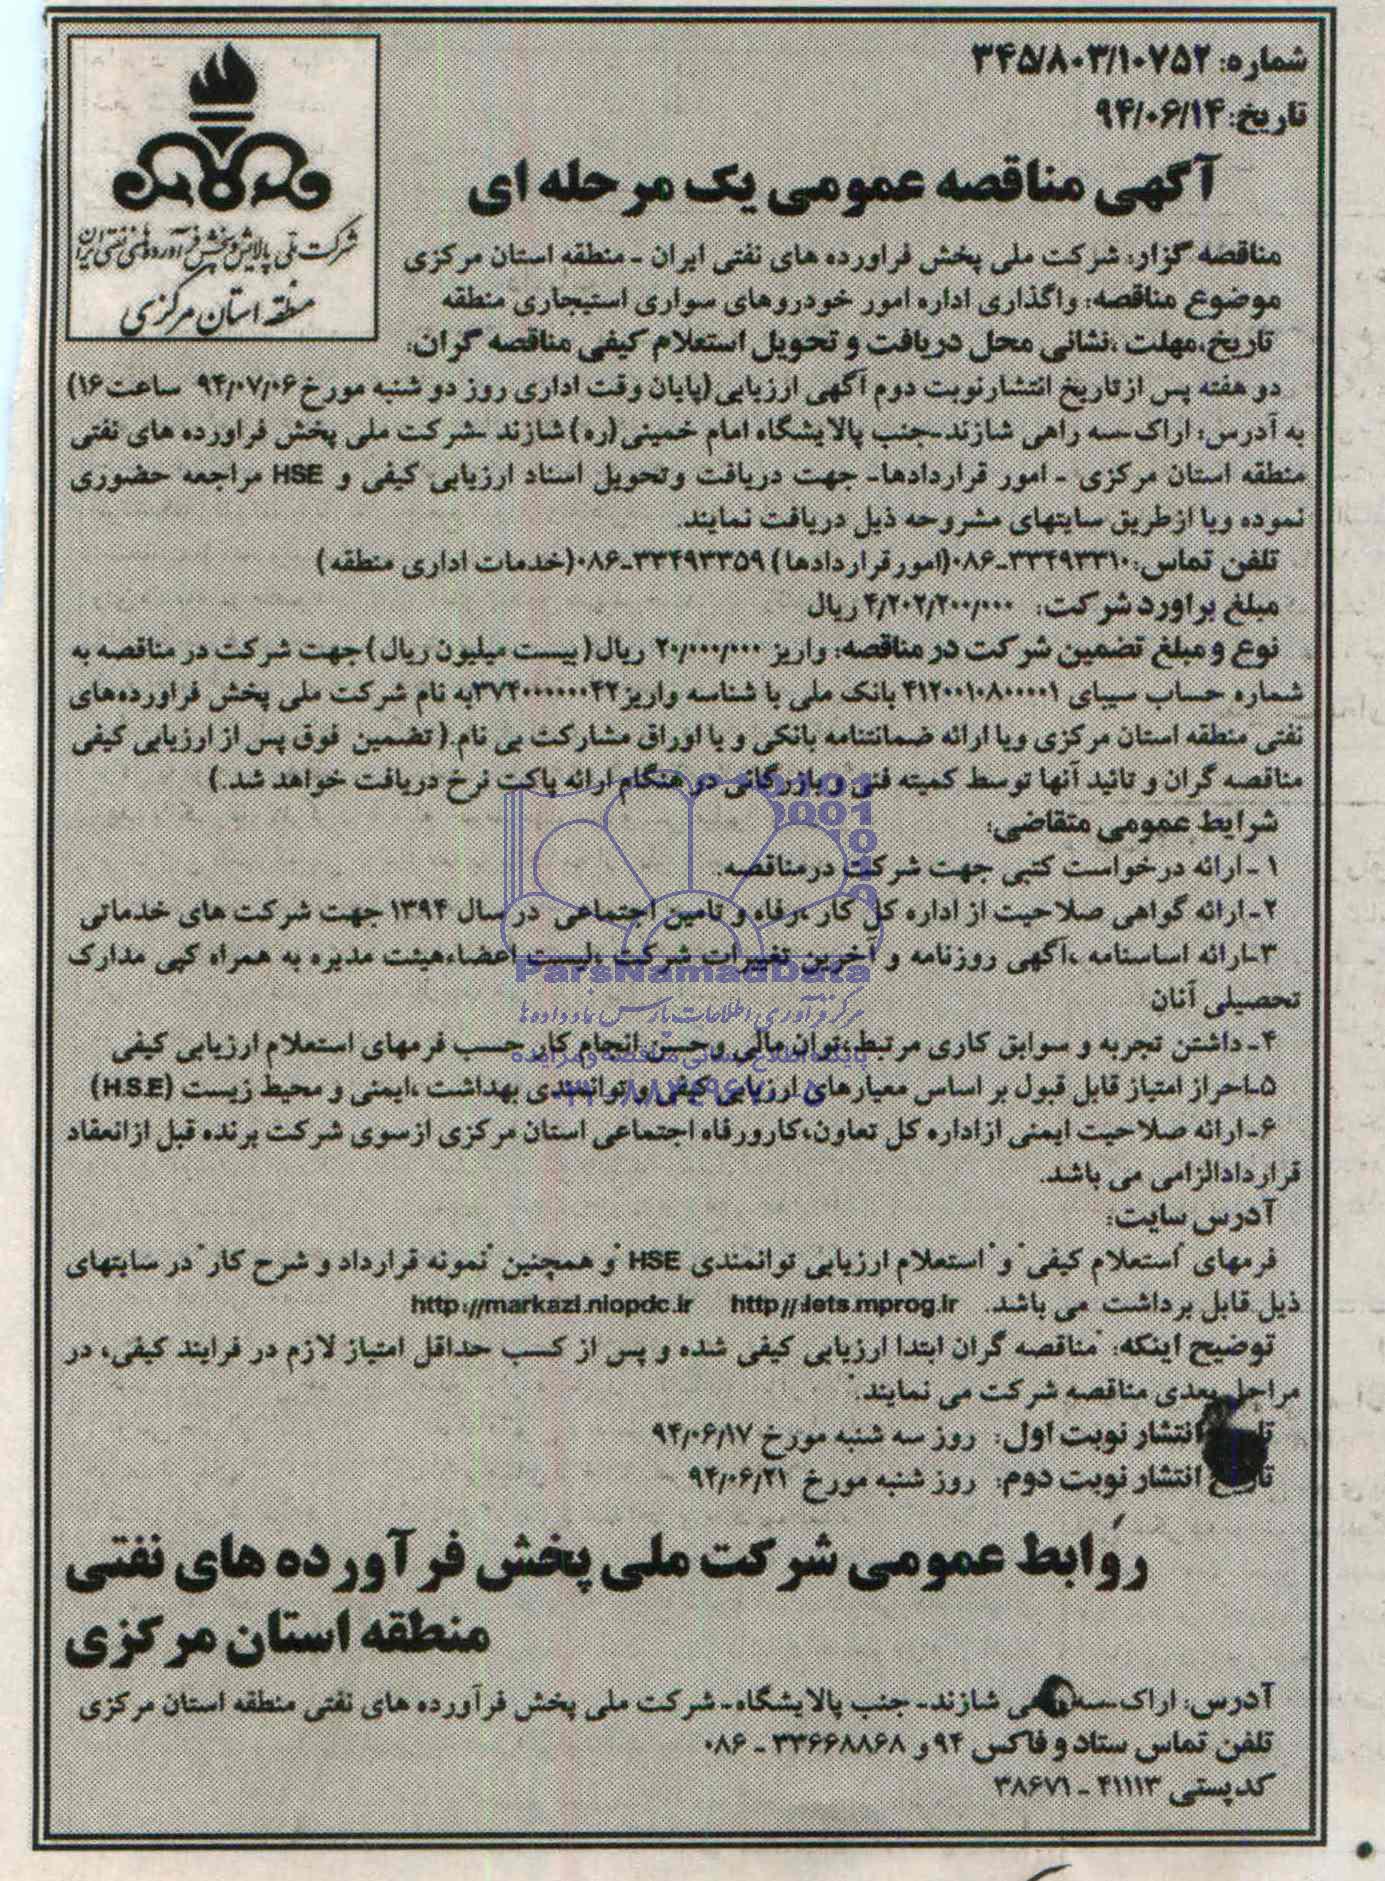 شماره: ۳۴۵/۸۰۳/۱۰۷۵۲
تاریخ: ۹۴/۰۶/۱۴
شرکت ملی پالایش و پخش فرآورده های نفتی ایران
منطقه استان مرکزی
آگهی مناقصه عمومی یک مرحله ای
مناقصه گزار: شرکت ملی پخش فراورده های نفتی ایران - منطقه استان مرکزی
موضوع مناقصه: واگذاری اداره امور خودروهای سواری استیجاری منطقه
تاریخ،مهلت ،نشانی محل دریافت و تحویل استعلام کیفی مناقصه گران:
دو هفته پس از تاریخ انتشارنوبت دوم آگهی ارزیابی (پایان وقت اداری روز دو شنبه مورخ ۹۴/۰۷/۰۶ ساعت ۱۶)
به آدرس: اراک-سه راهی شازند-جنب پالایشگاه امام خمینی (ره) شازند -شرکت ملی پخش فراورده های نفتی
منطقه استان مرکزی - امور قراردادها- جهت دریافت وتحویل اسناد ارزیابی کیفی و HSE مراجعه حضوری
نموده ویا ازطریق سایتهای مشروحه ذیل دریافت نمایند.
تلفن تماس: ۳۳۴۹۳۳۱۰-۰۸۶ (امورقراردادها) ۳۳۴۹۳۳۵۹-۰۸۶ (خدمات اداری منطقه )
مبلغ براورد شرکت: ۴/۲۰۲/۲۰۰/۰۰۰ ریال
نوع و مبلغ تضمین شرکت در مناقصه: واریز ۲۰/۰۰۰/۰۰۰ ریال ( بیست میلیون ریال ) جهت شرکت در مناقصه به
شماره حساب سیبای ۴۱۲۰۰۱۰۸۰۰۰۰۱ بانک ملی با شناسه واریز ۳۷۴۰۰۰۰۰۰۴۲ به نام شرکت ملی پخش فراورده‌های
نفتی منطقه استان مرکزی ویا ارائه ضمانتنامه بانکی و یا اوراق مشارکت بی نام.( تضمین فوق پس از ارزیابی کیفی
مناقصه گران و تائید آنها توسط کمیته فنی و بازرگانی در هنگام ارائه پاکت نرخ دریافت خواهد شد.)
شرایط عمومی متقاضی:
۱ - ارائه درخواست کتبی جهت شرکت درمناقصه.
۲- ارائه گواهی صلاحیت از اداره کل کار ،رفاه و تامین اجتماعی در سال ۱۳۹۴ جهت شرکت های خدماتی
۳-ارائه اساسنامه ،آگهی روزنامه و آخرین تغییرات شرکت ،لیست اعضاءهیئت مدیره به همراه کپی مدارک
تحصیلی آنان
ParsNamadData
مرکز فرآوری اطلاعات پارس نماد داده ها
۴- داشتن تجربه و سوابق کاری مرتبط،توان مالی وحسن انجام کار حسب فرمهای استعلام ارزیابی کیفی
پایگاه اطلاع رسانی مناقصه و مزایده
۵-احراز امتیاز قابل قبول بر اساس معیارهای ارزیابی کیفی و توانمندی بهداشت ،ایمنی و محیط زیست (H.S.E)
۶- ارائه صلاحیت ایمنی ازاداره کل تعاون،کارورفاه اجتماعی استان مرکزی ازسوی شرکت برنده قبل ازانعقاد
قراردادالزامی می باشد.
آدرس سایت:
فرمهای "استعلام کیفی" و" استعلام ارزیابی توانمندی HSE "و همچنین "نمونه قرارداد و شرح کار" در سایتهای
ذیل قابل برداشت می باشد. http//:iets.mprog.ir http://markazi.niopdc.ir
توضیح اینکه: "مناقصه گران ابتدا ارزیابی کیفی شده و پس از کسب حداقل امتیاز لازم در فرایند کیفی، در
مراحل بعدی مناقصه شرکت می نمایند."
انتشار نوبت اول: روز سه شنبه مورخ ۹۴/۰۶/۱۷
انتشار نوبت دوم: روز شنبه مورخ ۹۴/۰۶/۲۱
روابط عمومی شرکت ملی پخش فرآورده های نفتی
منطقه استان مرکزی
آدرس: اراک-سه راهی شازند- جنب پالایشگاه- شرکت ملی پخش فرآورده های نفتی منطقه استان مرکزی
تلفن تماس ستاد و فاکس ۹۴ و ۳۳۶۶۸۸۶۸ - ۰۸۶
کدپستی ۴۱۱۱۳ - ۳۸۶۷۱